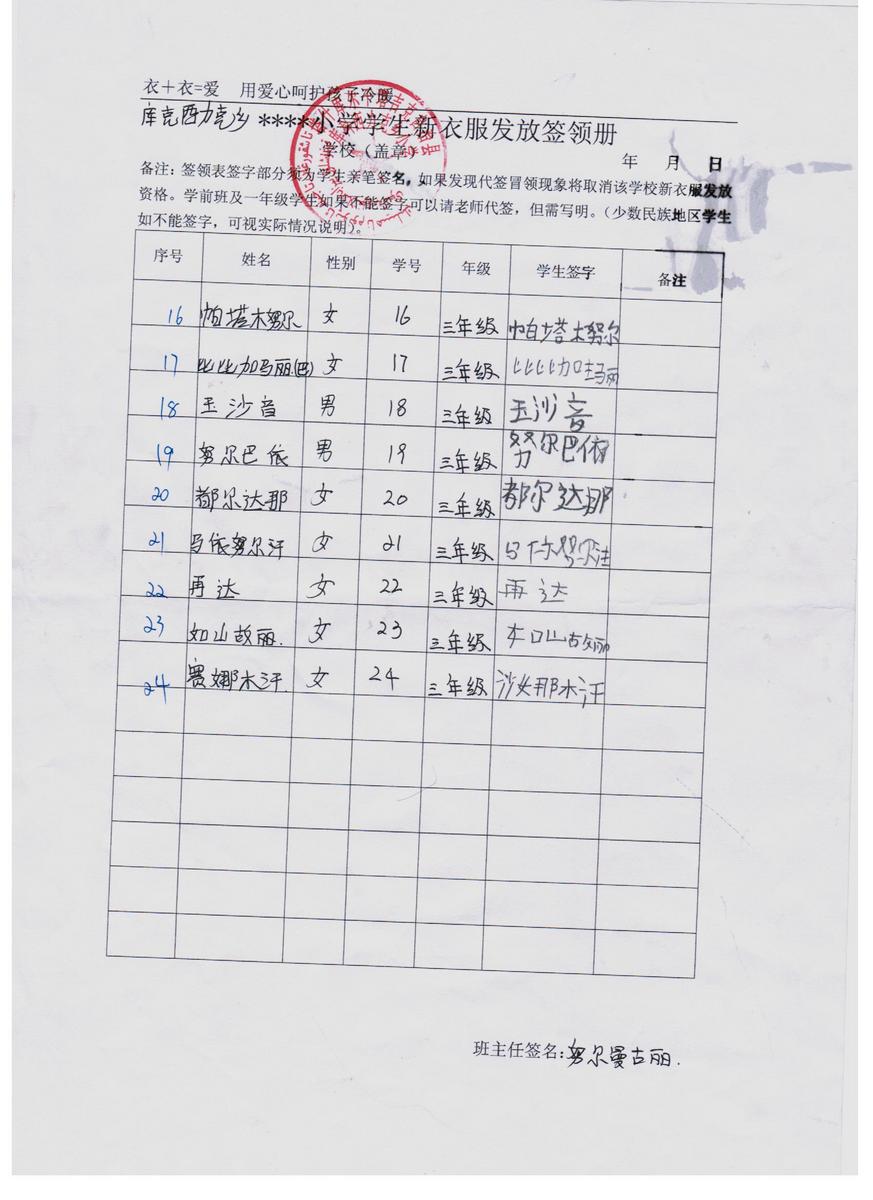 衣＋衣=爱 用爱心呵护孩子冷暖
库克西力克乡 ****小学学生新衣服发放签领册
学校（盖章）
年 月 日
备注：签领表签字部分须为学生亲笔签名，如果发现代签冒领现象将取消该学校新衣服发放
资格。学前班及一年级学生如果不能签字可以请老师代签，但需写明。（少数民族地区学生
如不能签字，可视实际情况说明）。
序号 姓名 性别 学号 年级 学生签字 备注
16 帕塔木努尔 女 16 三年级 帕塔木努尔
17 比比加玛丽(巴) 女 17 三年级 比比加玛丽
18 玉沙音 男 18 三年级 玉沙音
19 努尔巴依 男 19 三年级 努尔巴依
20 都尔达那 女 20 三年级 都尔达那
21 马依努尔汗 女 21 三年级
22 再达 女 22 三年级 再达
23 如山故丽. 女 23 三年级 如山故丽
24 赛娜木汗. 女 24 三年级 沙女那木汗
班主任签名:努尔曼古丽.